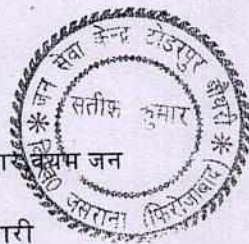 जन सेवा केन्द्र टोडरपुर बौथरी
सतीश कुमार
जसराना (फिरोजाबाद)
जन
री